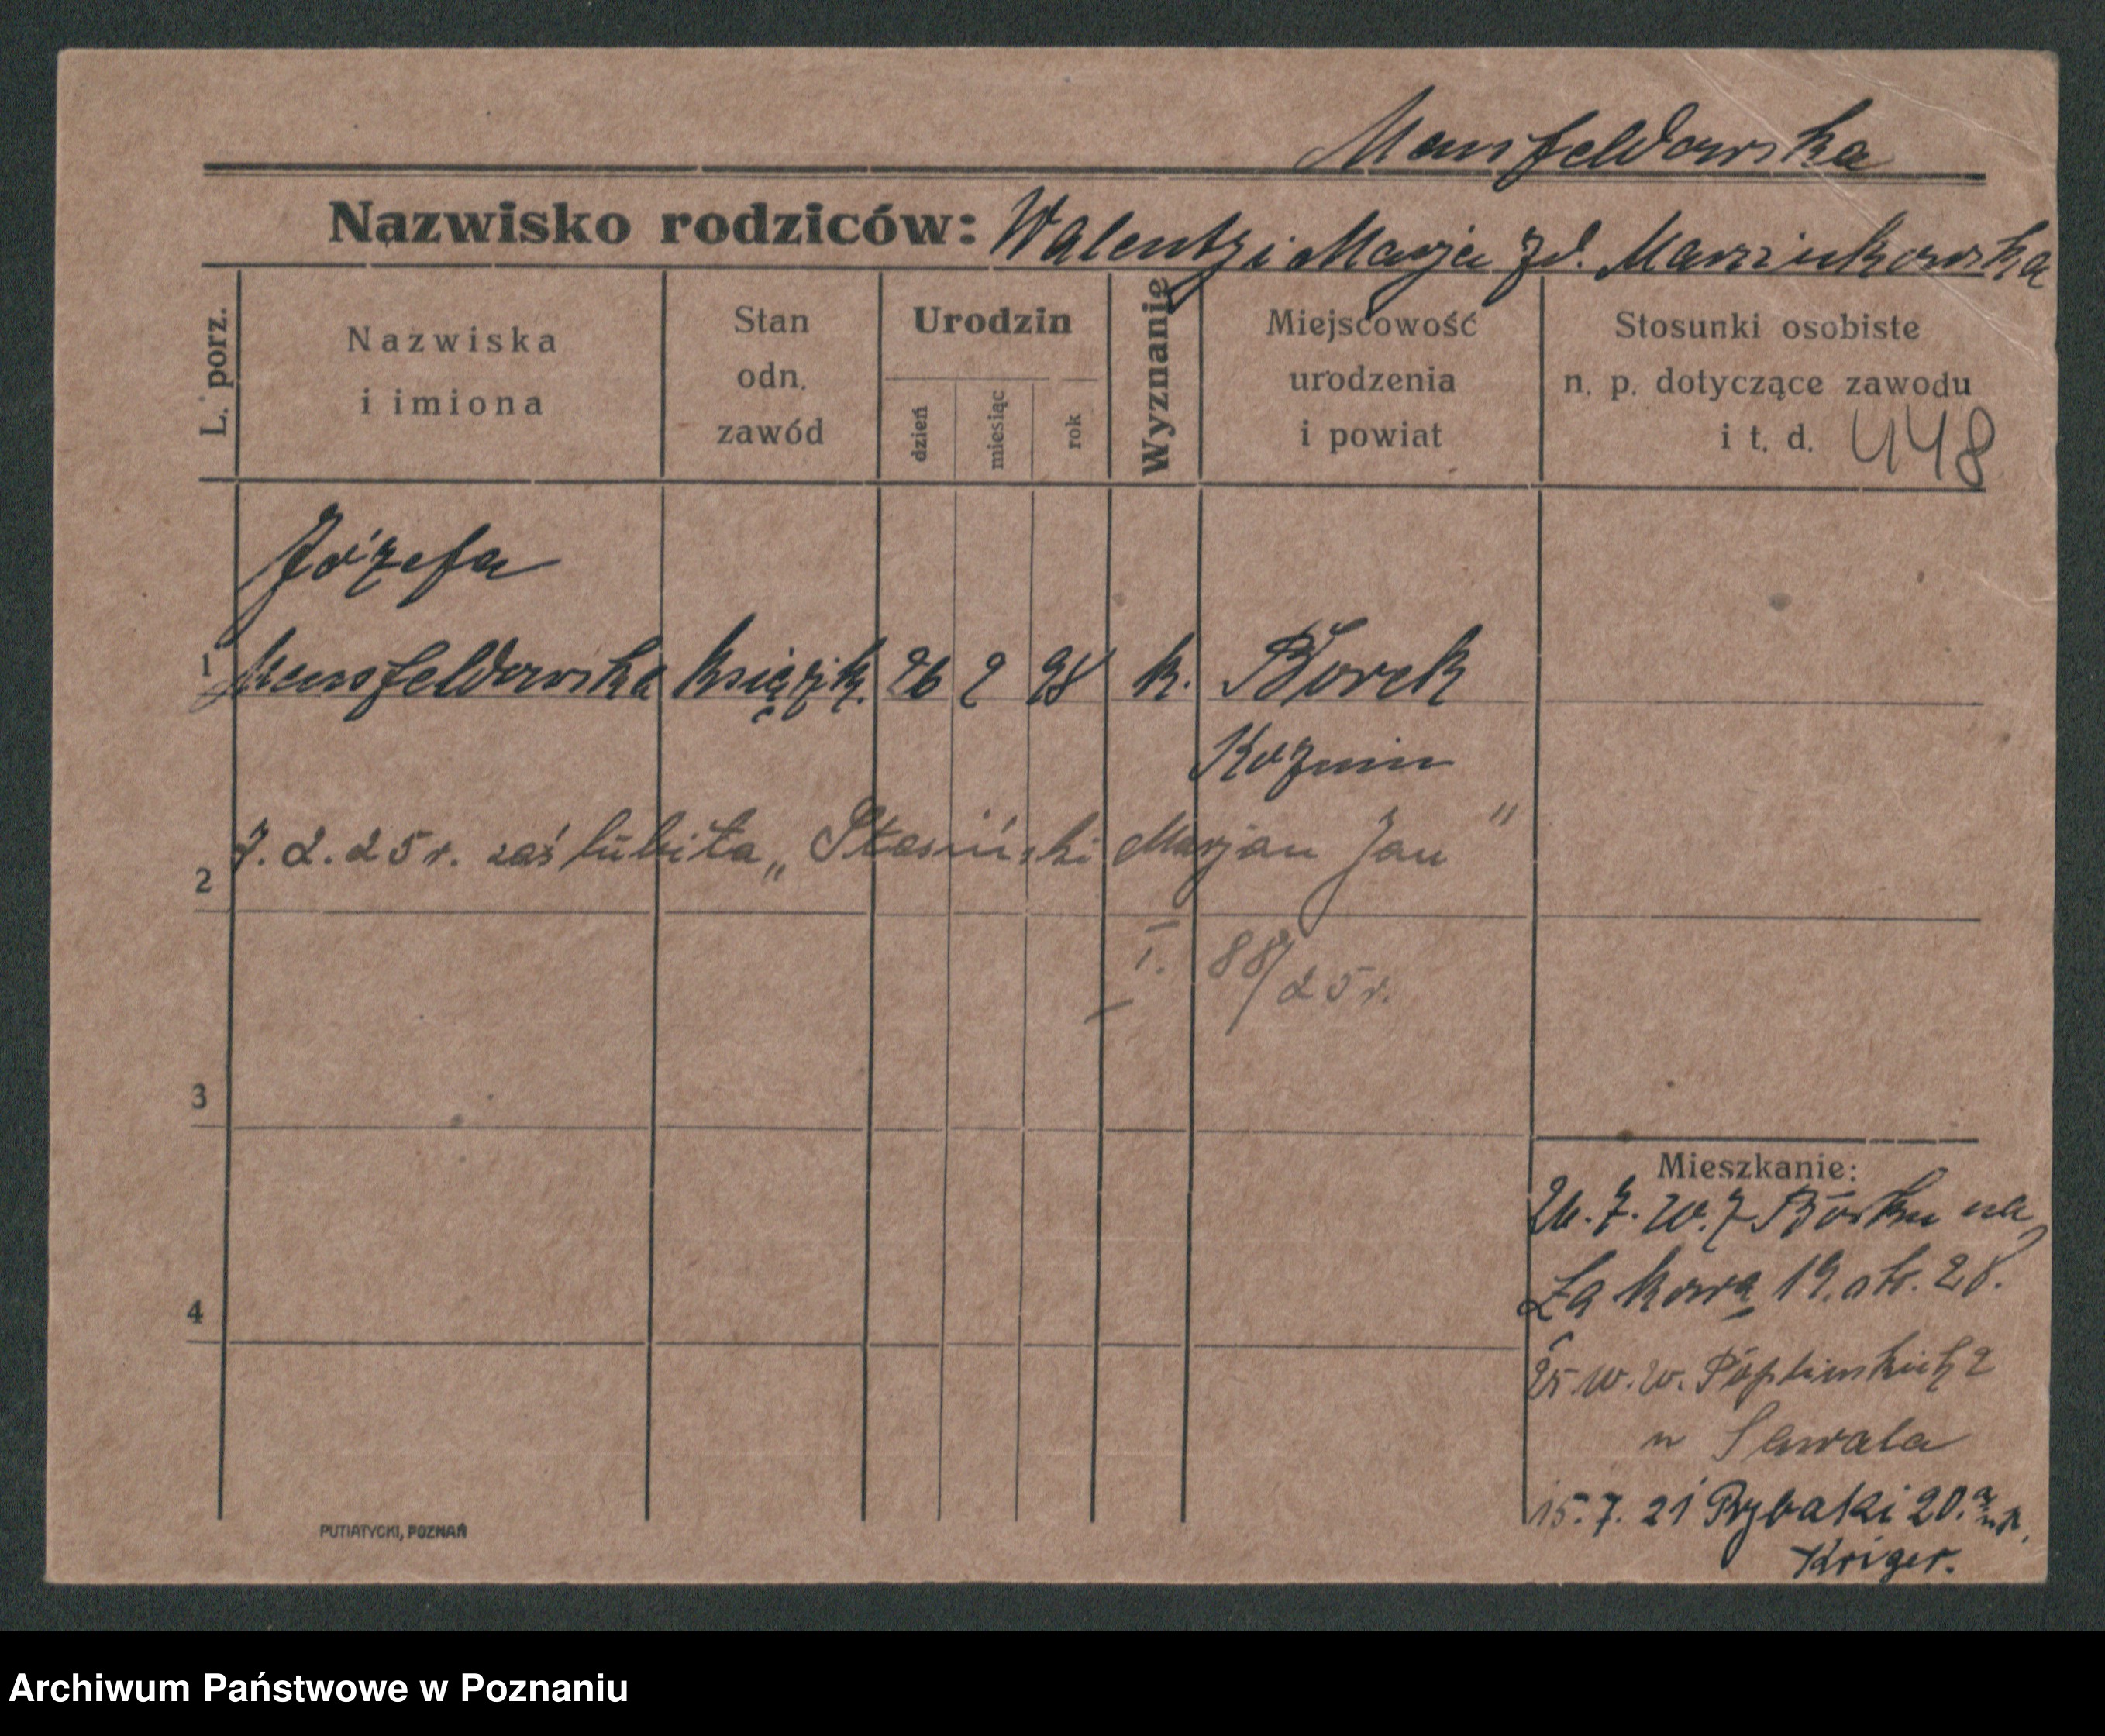 Mansfeldowska
Nazwisko rodziców: Walenty i Marja zd. Marcinkowska
L. porz.
Nazwiska
i imiona
Stan
odn.
zawód
Urodzin
dzień
miesiąc
rok
Wyznanie
Miejscowość
urodzenia
i powiat
Stosunki osobiste
n. p. dotyczące zawodu
i t. d. 448
Józefa
1 Mansfeldowska książk. 26 2 98 k. Borek
Kozmin
2 7.2.25 r. zaś lubiła „Stasiński Marjan Jan"
I. 88/25 r.
3
Mieszkanie:
z Borku na
Łąkową 19. 28.
4
Poplinskich 2
u Sawala
15.7.21 Rybaki 20.
Kriger.
PUTIATYCKI, POZNAŃ
Archiwum Państwowe w Poznaniu